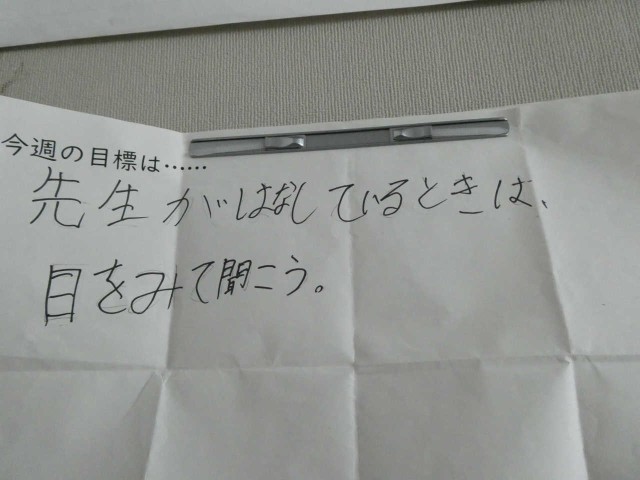 今週の目標は……
先生がはなしているときは、
目をみて聞こう。